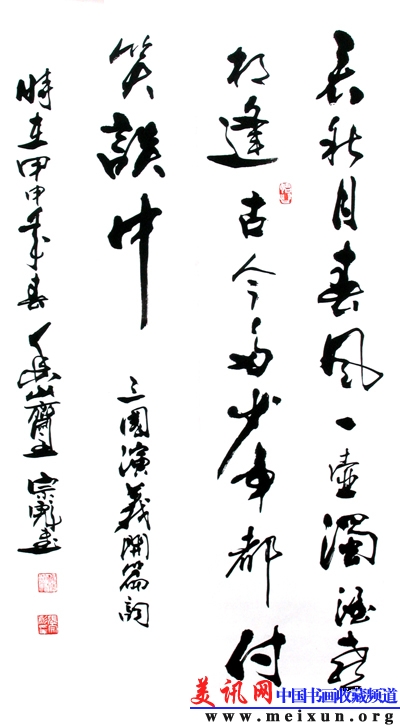 看秋月春風一壺濁酒喜
相逢古今多少事都付
笑談中
三國演義開篇詞
時在甲申年春 山齋主 宗 書
美讯网 中国书画收藏频道
www.meixun.org